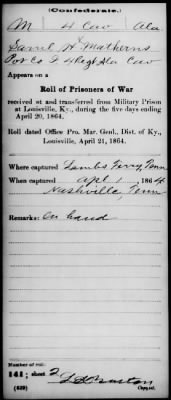 (Confederate.)
M 4 Cav Ala
Saml H. Matherns
Pvt Co F 4 Regt Ala Cav
Appears on a
Roll of Prisoners of War
received at and transferred from Military Prison
at Louisville, Ky., during the five days ending
April 20, 1864.
Roll dated Office Pro. Mar. Genl., Dist. of Ky.,
Louisville, April 21, 1864.
Where captured Lambs Ferry, Tenn
When captured Apl 1, 1864
Nashville, Tenn
Remarks: On hand
Number of roll:
141; sheet 2
(639) Copyist.